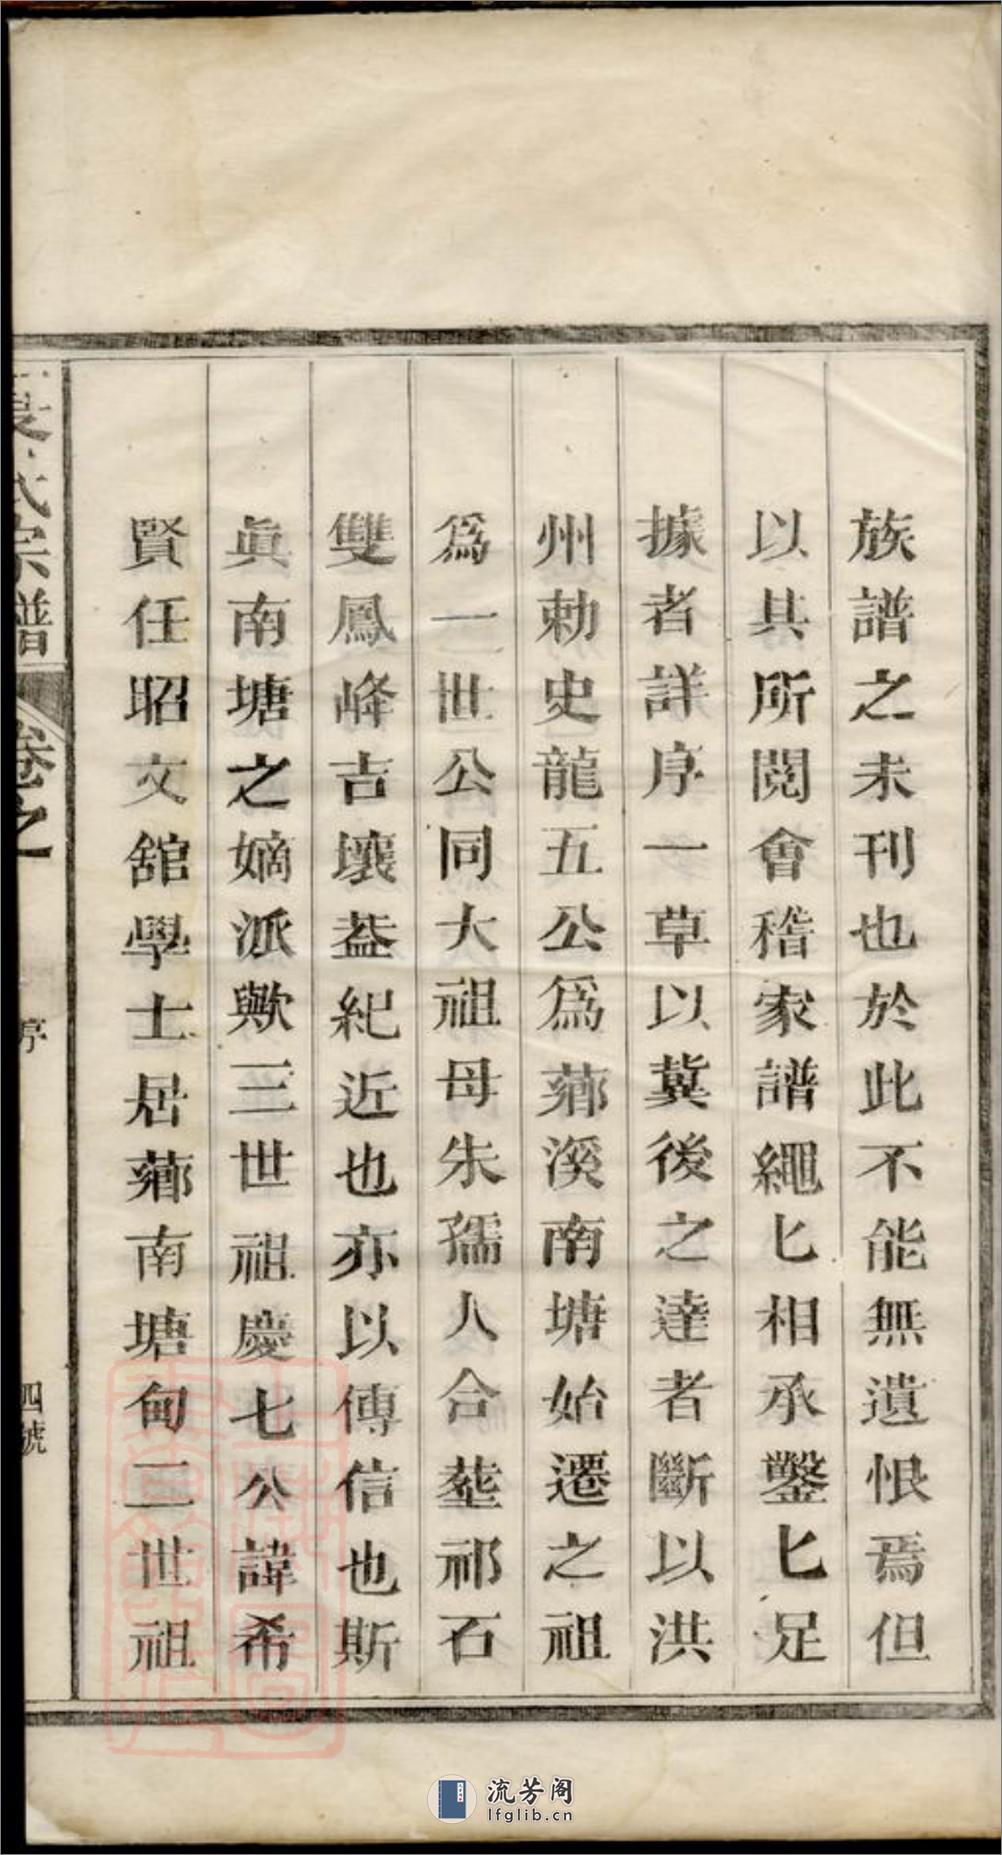 族譜之未刊也於此不能無遺恨焉但
以其所閱會稽家譜繩匕相承鑿匕足
據者詳序一草以冀後之達者斷以洪
州勅史龍五公爲薌溪南塘始遷之祖
爲一世公同大祖母朱孺人合塟祁石
雙鳳峰吉壤葢紀近也亦以傳信也斯
眞南塘之嫡派歟三世祖慶七公諱希
賢任昭文舘學士居薌南塘甸三世祖
氏宗譜
卷之
序
四號
流芳阁
lfglib.cn